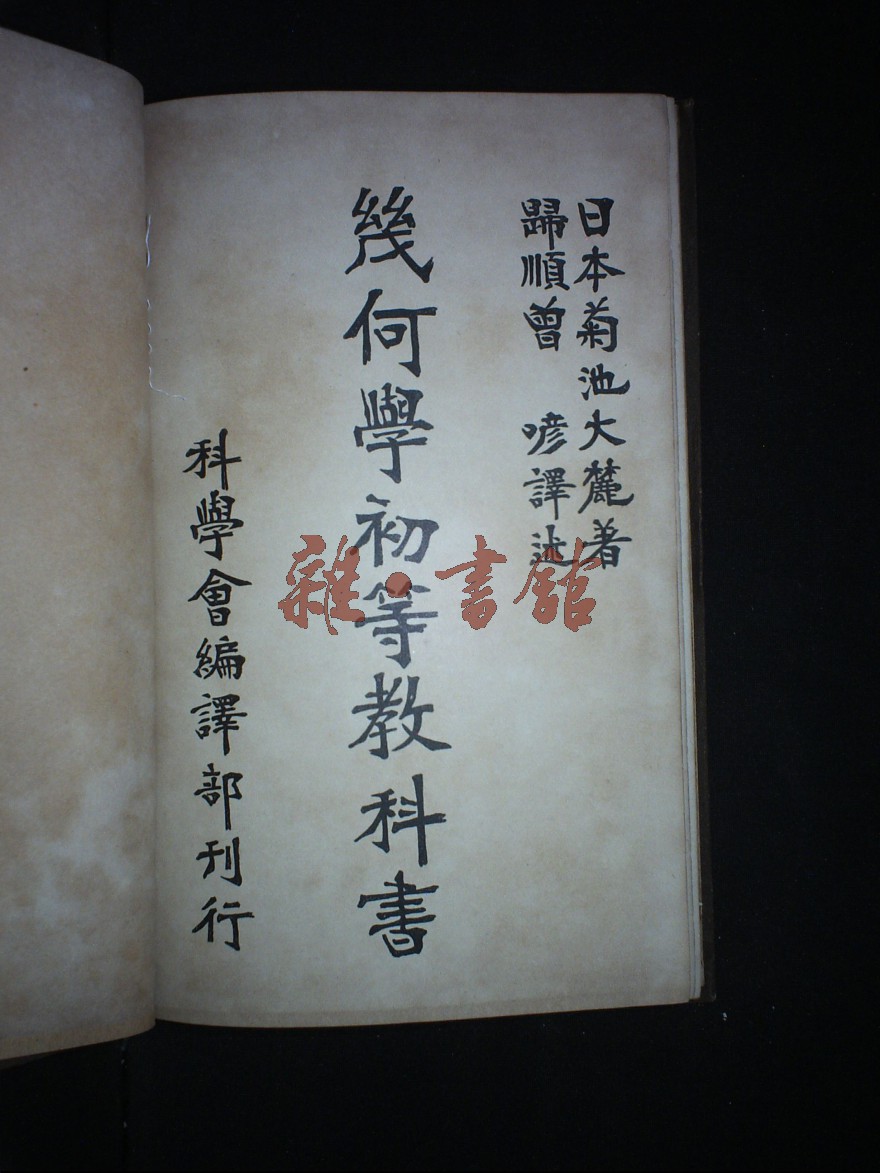 日本菊池大麓著
歸順曾 喭譯述
幾何學初等教科書
科學會編譯部刊行
雜·書館